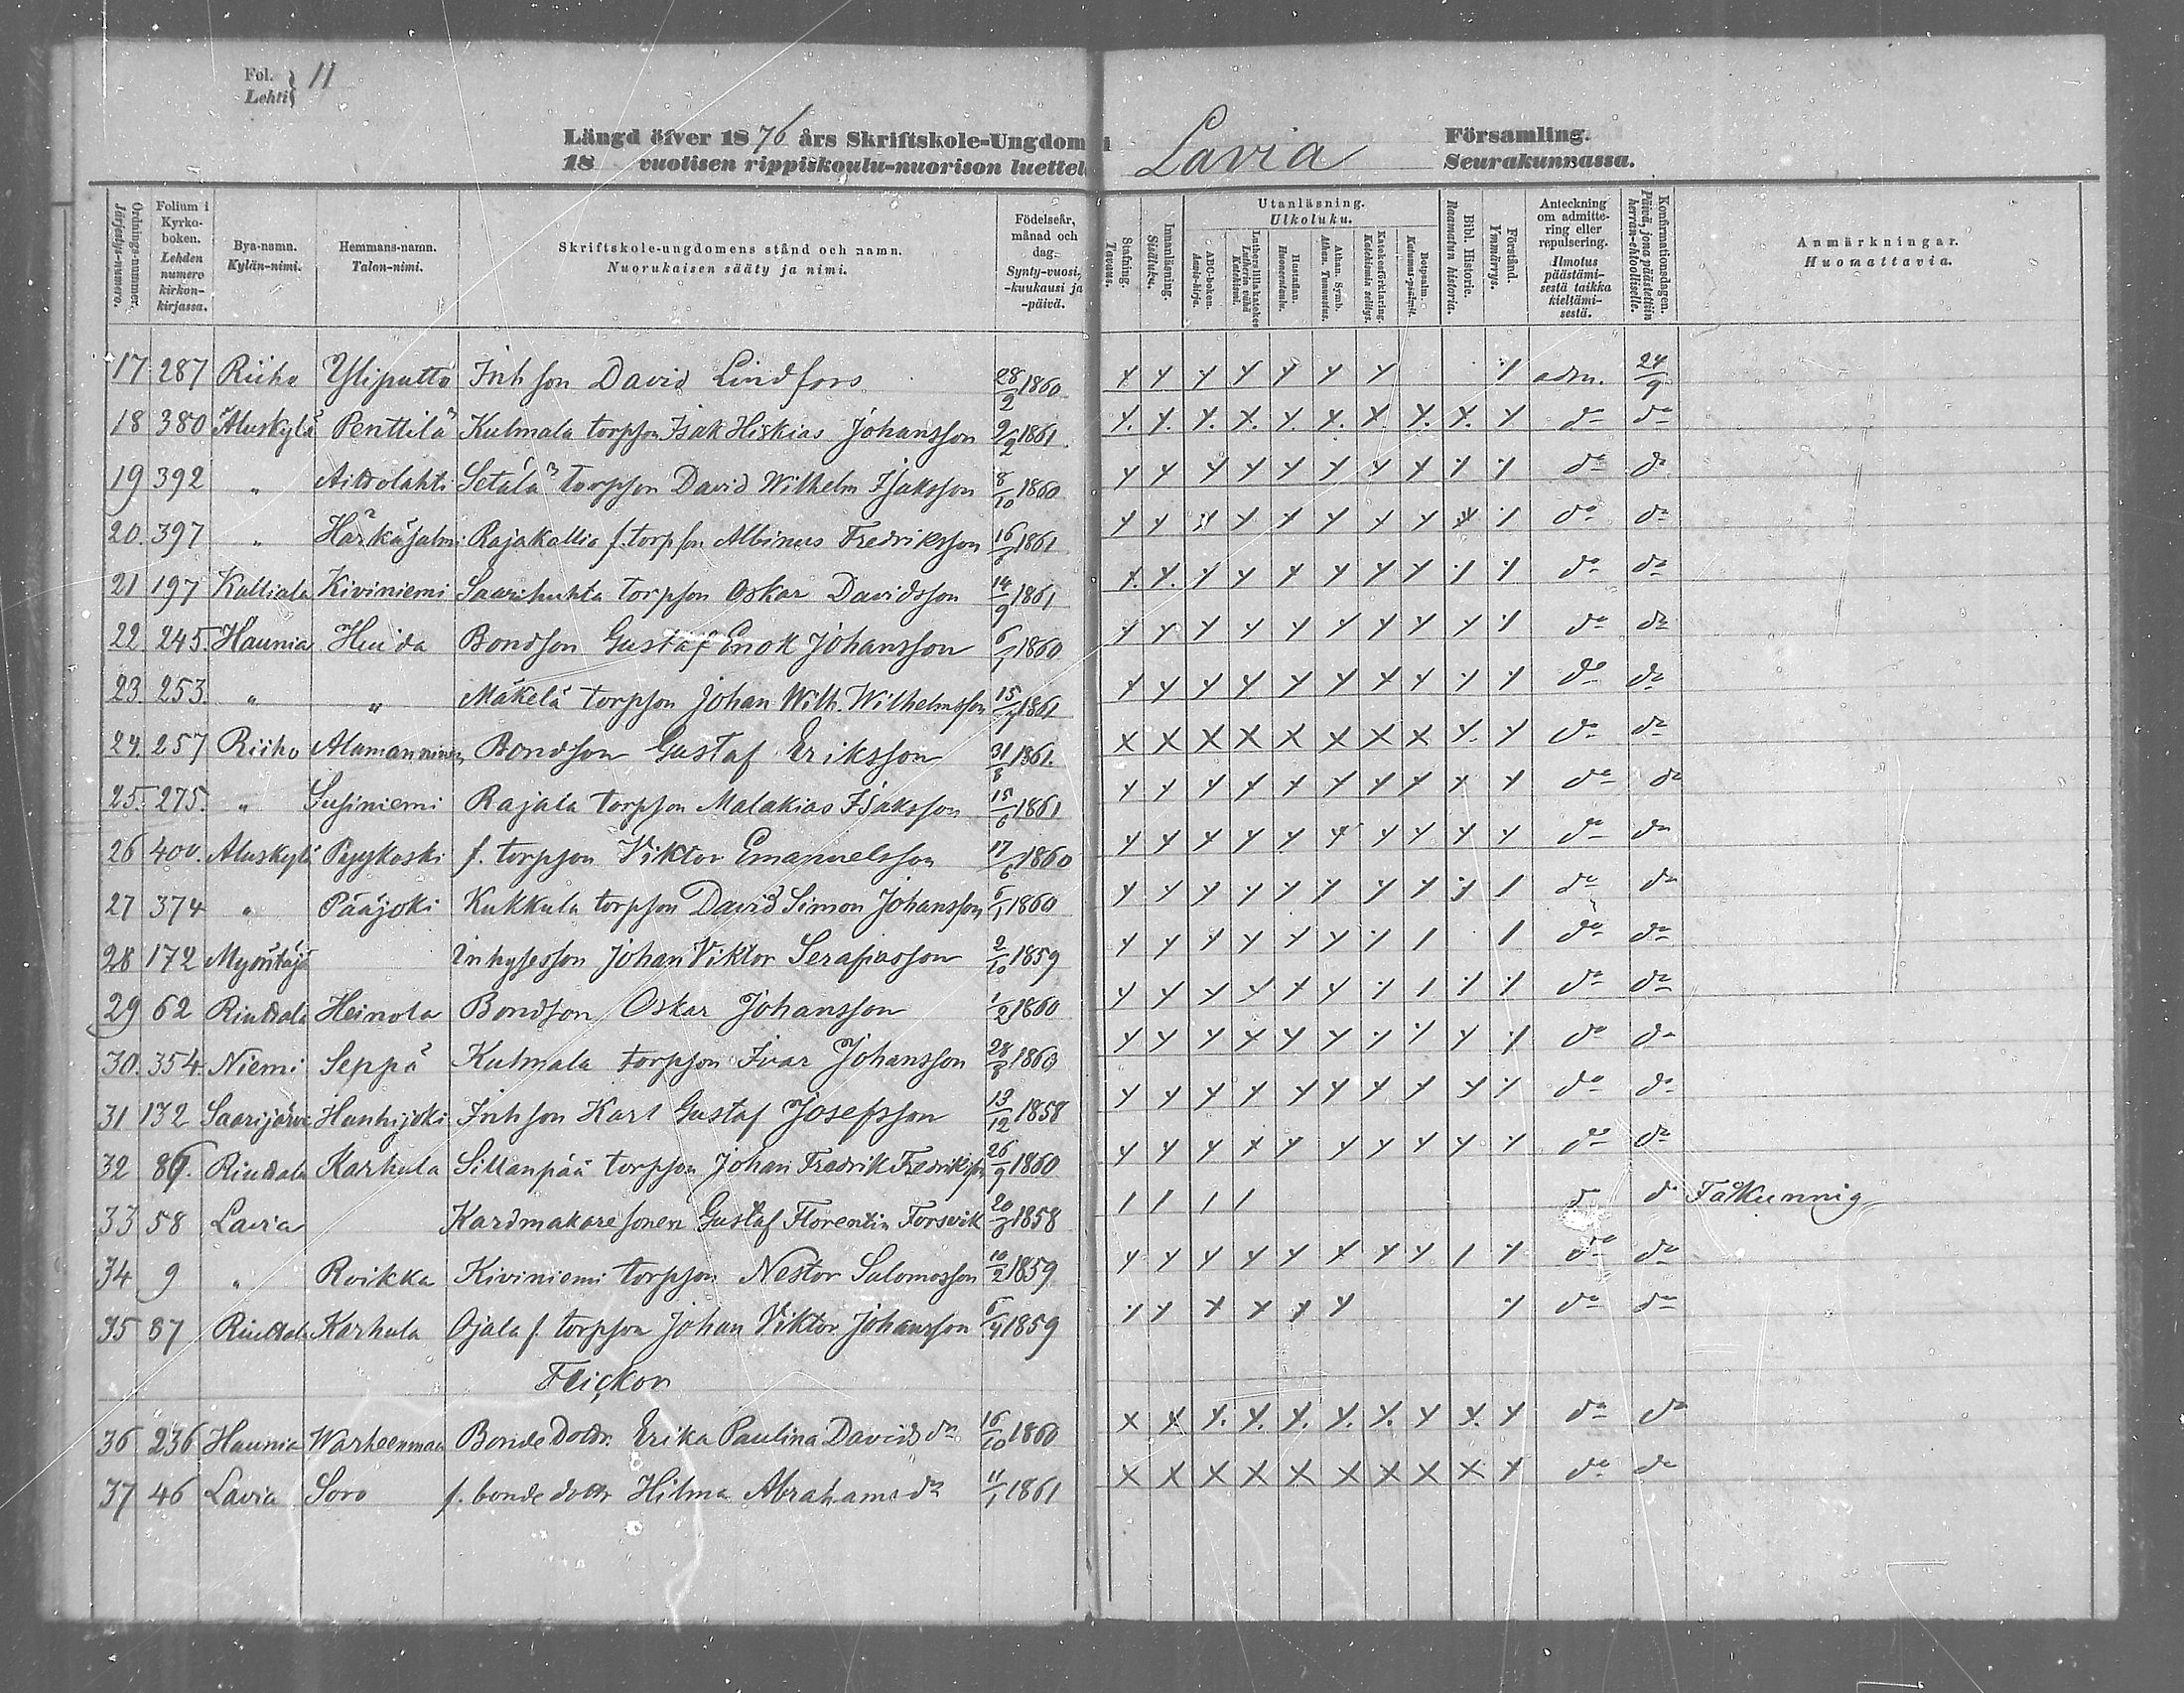 Fol. Lehti } 11
Längd öfver 1876 års Skriftskole-Ungdom i Lavia Församling.
18 vuotisen rippiskoulu-nuorison luettel Seurakunnassa.
Ordnings-nummer. Järjestys-numero.
Folium i Kyrko-boken. Lehden numero kirkon-kirjassa.
Bya-namn. Kylän-nimi.
Hemmans-namn. Talon-nimi.
Skriftskole-ungdomens stånd och namn. Nuorukaisen sääty ja nimi.
Födelseår, månad och dag. Synty-vuosi, -kuukausi ja -päivä.
Stafning. Tavaus.
Innanläsning. Sisäluku.
Utanläsning. Ulkoluku.
ABC-boken. Aapis-kirja.
Lutheri lilla katekes Lutherin vähä Katekismi.
Hustaflan. Huoneentaulu.
Athan. Symb. Athan. Tunnustus.
Katekesförklaring. Katekismin selitys.
Botpsalm. Katumus-psalmit.
Bibl. Historie. Raamatun historia.
Förstånd. Ymmärrys.
Anteckning om admittering eller repulsering. Ilmotus päästämisestä taikka kieltämisestä.
Konfirmationsdagen. Päivä, jona päästettiin herran-ehtoolliselle.
Anmärkningar. Huomattavia.
17. 287 Riiho Yliputto Inh son David Lindfors 28/2 1860 adm. 24/9
18 380 Aluskylä Penttilä Kulmala torpson Isak Hiskias Johansson 2/2 1861 do do
19 392 " Aittolahti Setälä torpson David Wilhelm Isaksson 8/10 1860 do do
20. 397 " Härkäsalmi Rajakallio f. torpson Albinus Fredriksson 16/8 1861 do do
21 197 Kalliala Kiviniemi Saarihuhta torpson Oskar Davidsson 14/9 1861 do do
22 245. Haunia Huida Bondson Gustaf Enok Johansson 6/1 1860 do do
23. 253 " " Mäkelä torpson Johan Wilh. Wilhelmsson 15/7 1861 do do
24. 257 Riiho Alamanninen Bondson Gustaf Eriksson 31/8 1861. do do
25. 275. " Susiniemi Rajala torpson Malakias Isaksson 15/6 1861 do do
26 400. Aluskylä Pyykoski f. torpson Viktor Emanuelsson 17/6 1860 do do
27 374 " Pääjoki Kukkula torpson David Simon Johansson 6/1 1860 do do
28 172 Myöntäjä Inhysesson Johan Viktor Serafiasson 2/10 1859 do do
29 62 Riuttala Heinola Bondson Oskar Johansson 1/2 1860 do do
30. 354. Niemi Seppä Kulmala torpson Ivar Johansson 28/8 1860 do do
31 132 Saarijärvi Hanhijoki Inh son Karl Gustaf Josefsson 13/12 1858 do do
32 89. Riuttala Karhula Sillanpää torpson Johan Fredrik Fredriksson 26/9 1860 do do
33 58 Lavia Kardmakaresonen Gustaf Florentin Forsvik 20/3 1858 do do Fåkunnig
34 9 " Roikka Kiviniemi torpson Nestor Salomosson 10/2 1859 do do
35 87 Riuttala Karhula Ojala f. torpson Johan Viktor Johansson 6/4 1859 do do
Flickor
36 236 Haunia Warheenmaa Bonde dottr. Erika Paulina Davids dr 16/10 1860 do do
37 46 Lavia Soro f. bonde dottr Hilma Abrahams dr 11/1 1861 do do